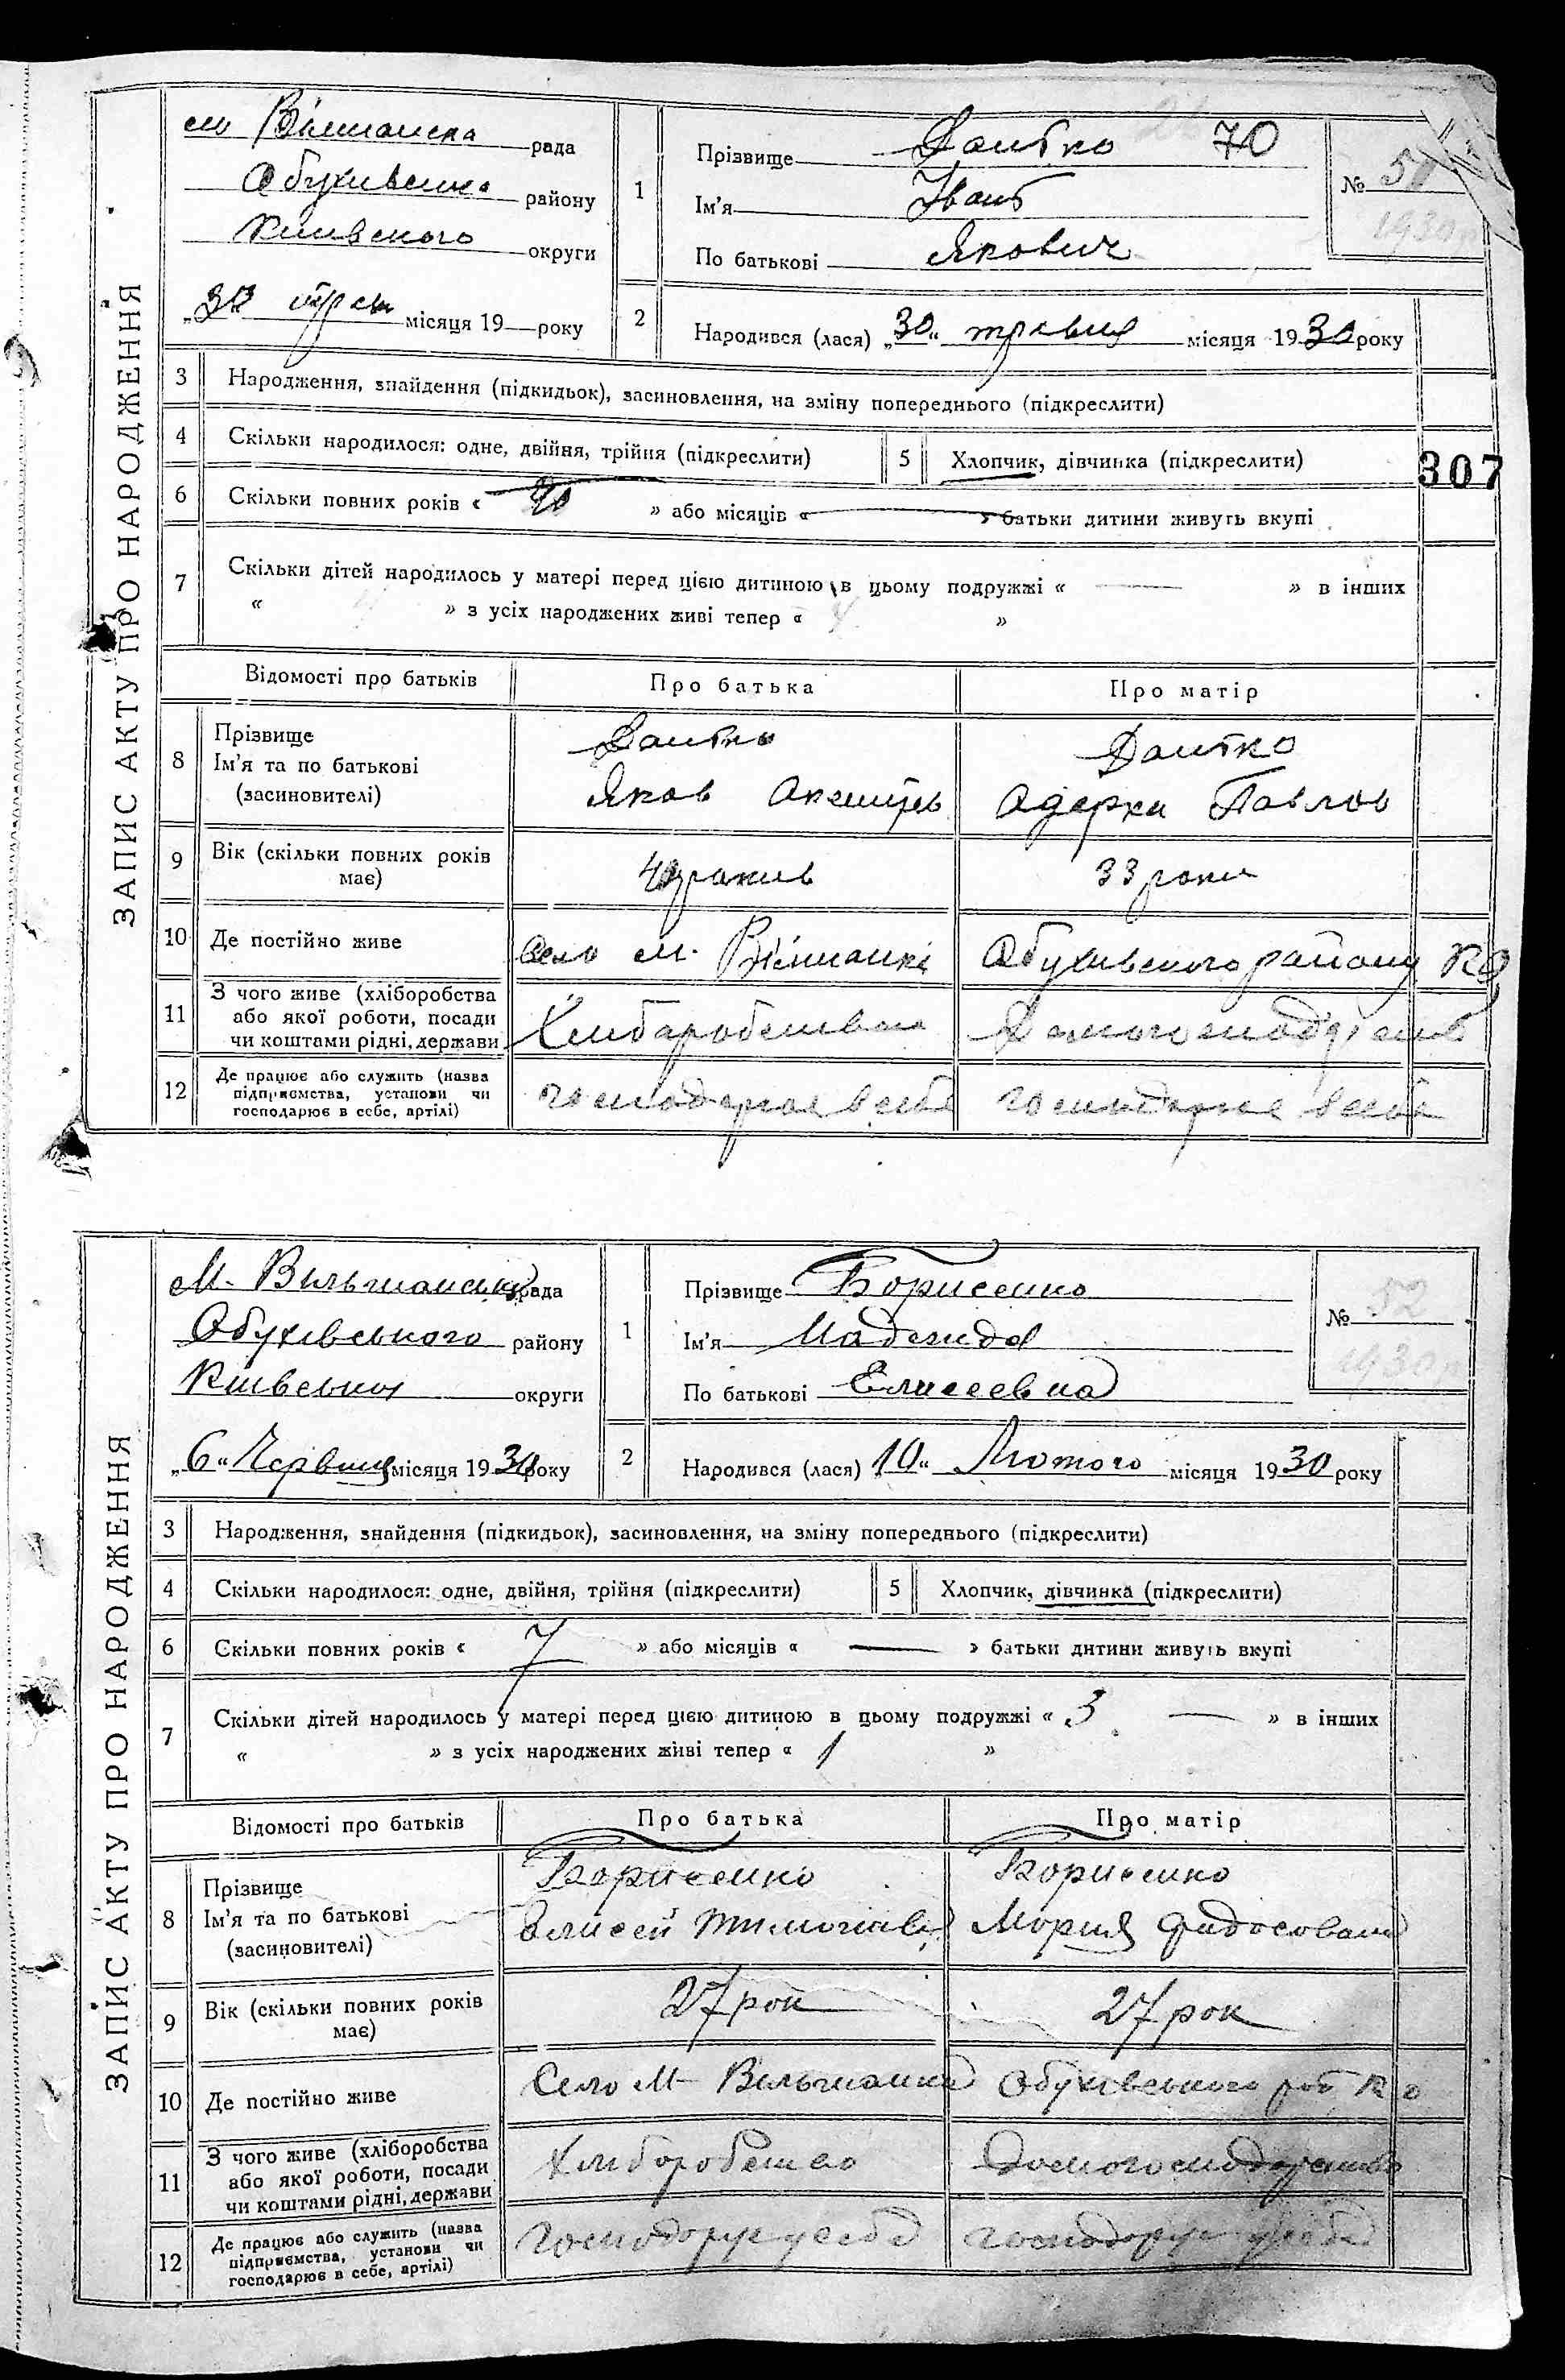 ЗАПИС АКТУ ПРО НАРОДЖЕННЯ
рада
району
Киивского округи
„30 трав місяця 19 року
1
Прізвище Даитко 70
Ім'я Іван
По батькові Якович
№ 51
1930
2
Народився (лася) „30“ травня місяця 1930 року
3 Народження, знайдення (підкидьок), засиновлення, на зміну попереднього (підкреслити)
4 Скільки народилося: одне, двійня, трійня (підкреслити)
5 Хлопчик, дівчинка (підкреслити)
307
6 Скільки повних років « » або місяців « — » батьки дитини живуть вкупі
7 Скільки дітей народилось у матері перед цією дитиною в цьому подружжі « — » в інших
« » з усіх народжених живі тепер « »
Відомості про батьків
Про батька
Про матір
8 Прізвище
Ім'я та по батькові
(засиновителі)
Даитко
Яков
Даитко
Павлов
9 Вік (скільки повних років
має)
33 роки
10 Де постійно живе
село м. Обухивского району К О
11 З чого живе (хліборобства
або якої роботи, посади
чи коштами рідні, держави
12 Де працює або служить (назва
підприємства, установи чи
господарює в себе, артілі)
господарює в себе
господарює в себе
ЗАПИС АКТУ ПРО НАРОДЖЕННЯ
М. Вильшанська рада
Обухівського району
округи
„6“ Червня місяця 1930 року
1
Прізвище Борисенко
Ім'я Надежда
По батькові Елисеевна
№ 52
1930 р
2
Народився (лася) „10“ Лютого місяця 1930 року
3 Народження, знайдення (підкидьок), засиновлення, на зміну попереднього (підкреслити)
4 Скільки народилося: одне, двійня, трійня (підкреслити)
5 Хлопчик, дівчинка (підкреслити)
6 Скільки повних років « 7 » або місяців « — » батьки дитини живуть вкупі
7 Скільки дітей народилось у матері перед цією дитиною в цьому подружжі « 3 — » в інших
« » з усіх народжених живі тепер « 1 »
Відомості про батьків
Про батька
Про матір
8 Прізвище
Ім'я та по батькові
(засиновителі)
Борисенко
Елисей
Борисенко
Мария
9 Вік (скільки повних років
має)
27 рок
27 рок
10 Де постійно живе
Село М Вильшанка Обухівського К о
11 З чого живе (хліборобства
або якої роботи, посади
чи коштами рідні, держави
12 Де працює або служить (назва
підприємства, установи чи
господарює в себе, артілі)
господорує у себе
господорує у себе